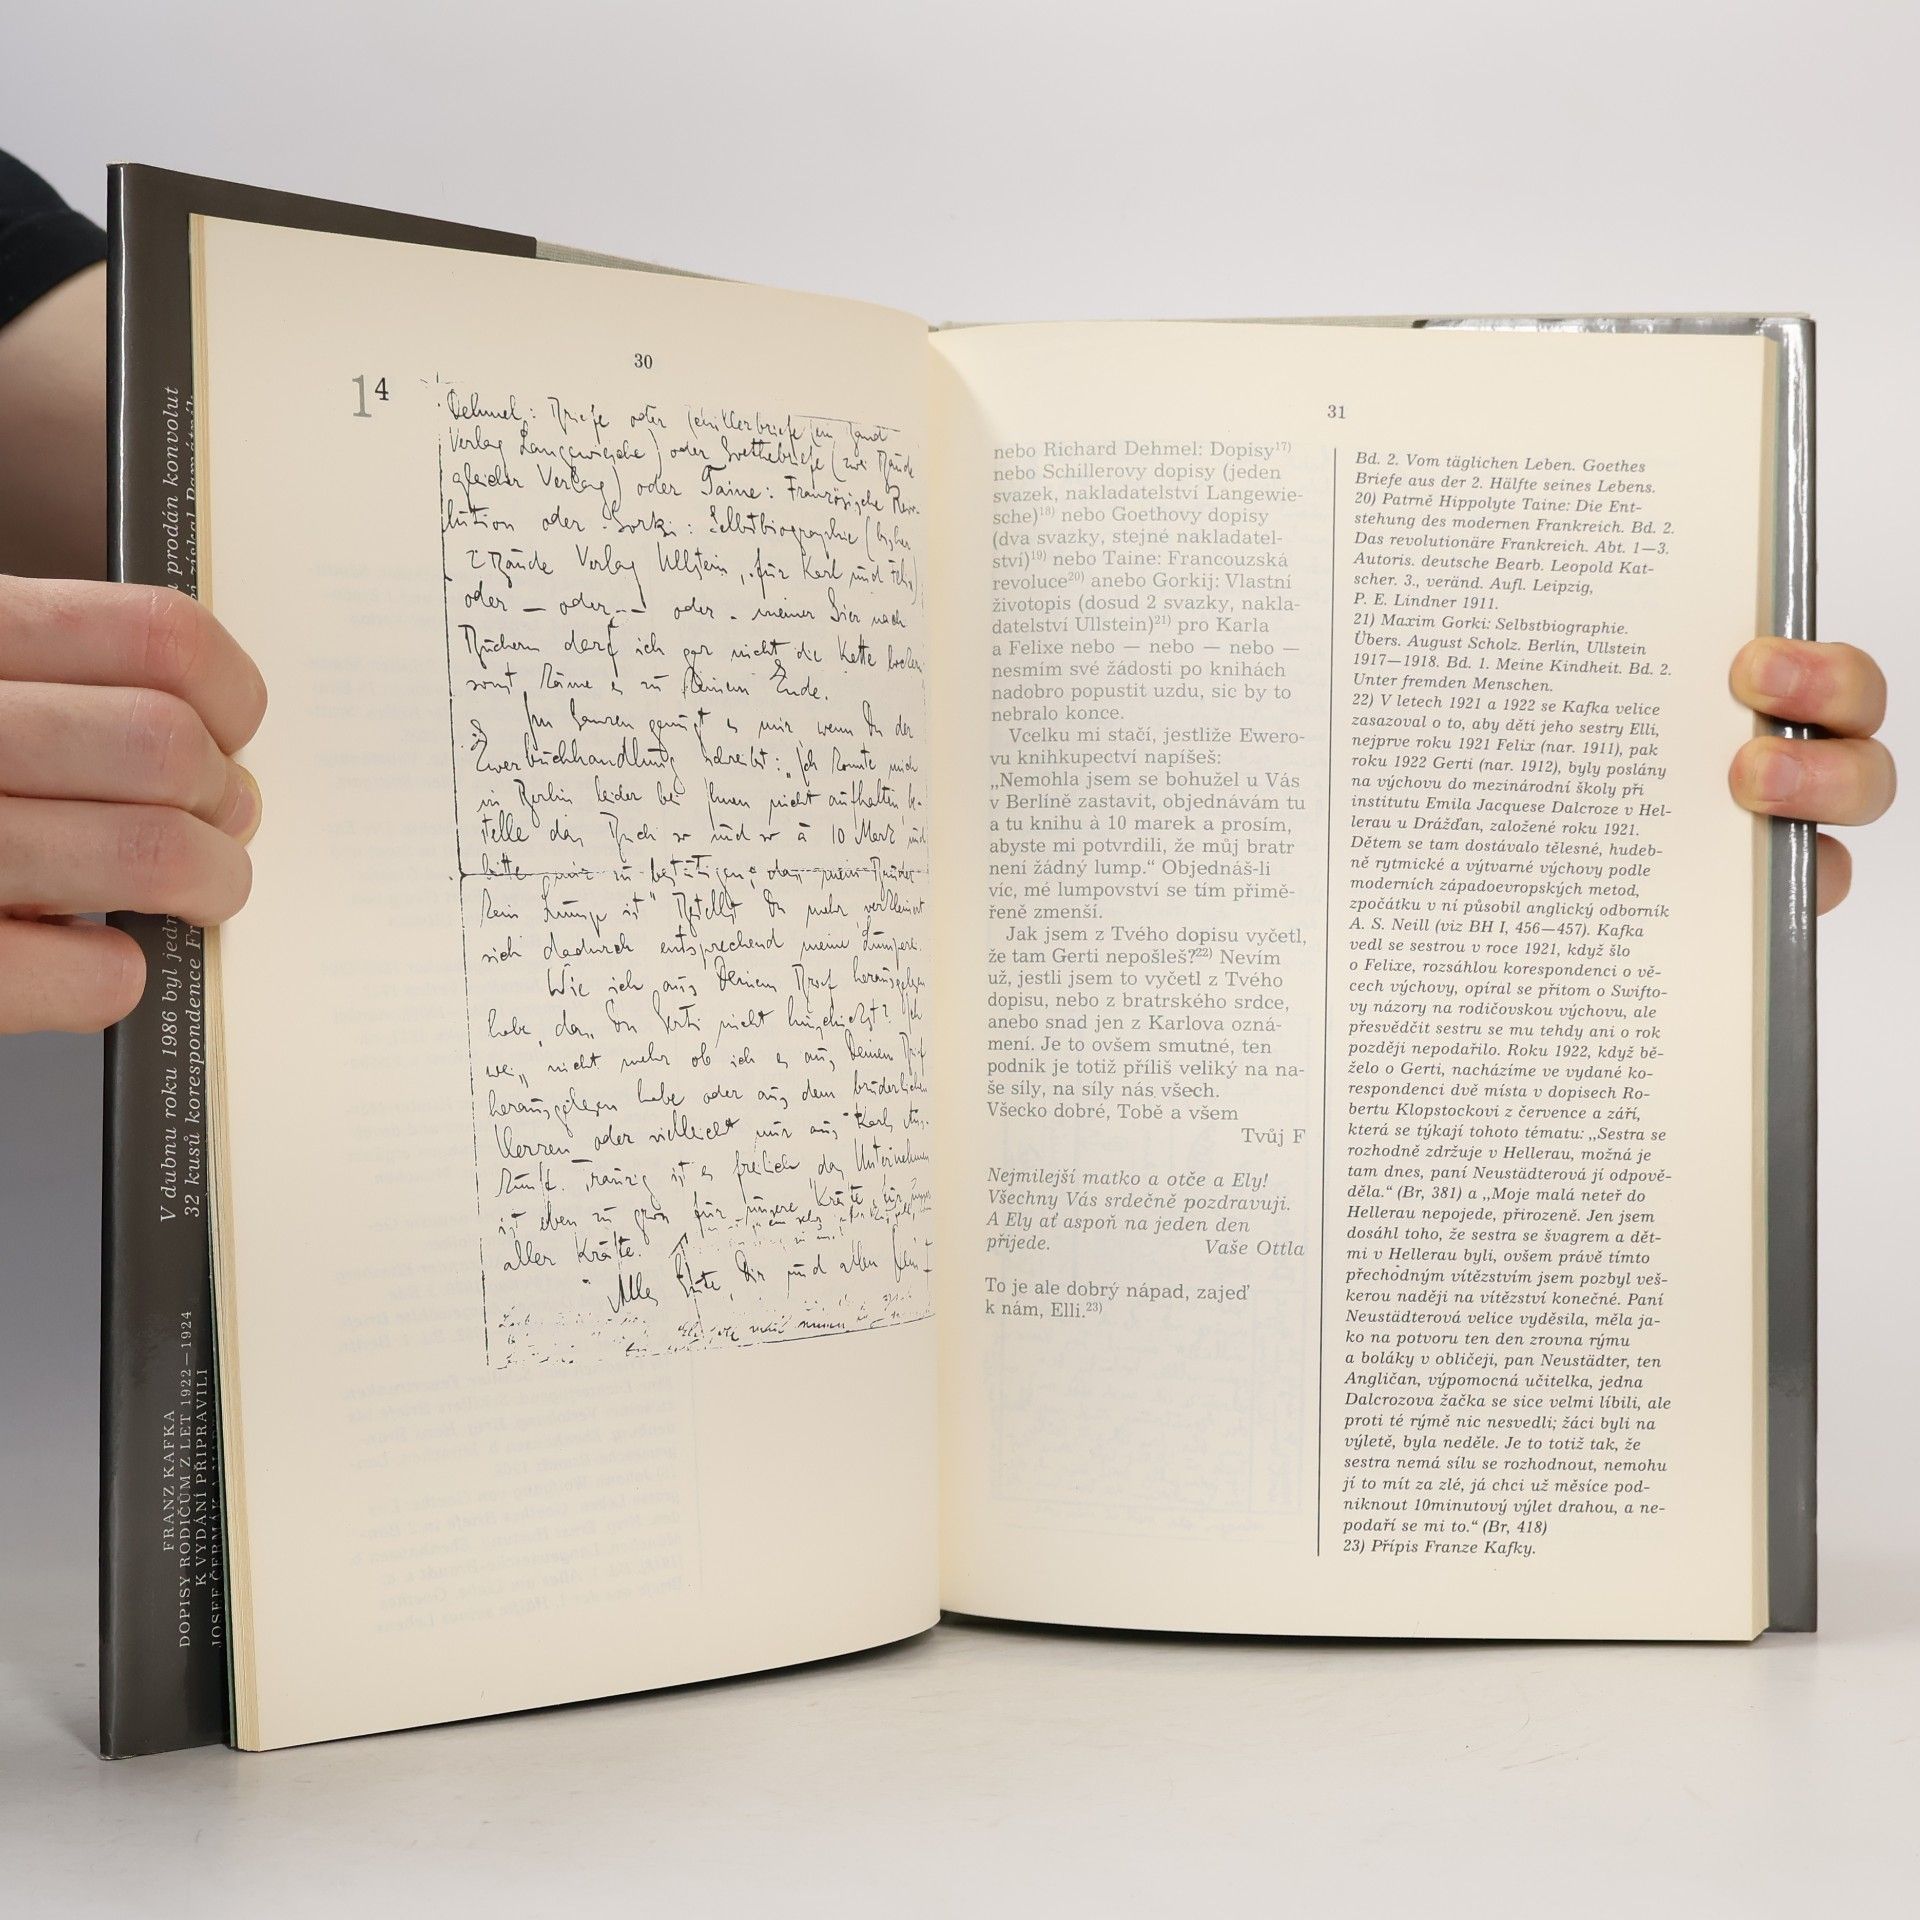 V dubnu roku 1986 byl jedn
prodán konvolut
32 kusů korespondence Fr
FRANZ KAFKA
DOPISY RODIČŮM Z LET 1922—1924
K VYDÁNÍ PŘIPRAVILI
JOSEF ČERMÁK
30
1⁴
Dehmel: Briefe oder Schillerbriefe (ein Band
Verlag Langewiesche) oder Goethebriefe (zwei Bände
gleicher Verlag) oder Taine: Französische Revo-
lution oder Gorki: Selbstbiographie (bisher
2 Bände Verlag Ullstein, für Karl und Felix)
oder — oder — oder — meiner Gier nach
Büchern darf ich gar nicht die Kette lockern
sonst käme es zu keinem Ende.
Im Ganzen genügt es mir, wenn Du der
Ewerbuchhandlung schreibst: „Ich konnte mich
in Berlin leider bei Ihnen nicht aufhalten, be-
stelle das Buch so und so à 10 Mark und
bitte mir zu bestätigen, dass mein Bruder
kein Lump ist" Bestellst Du mehr verkleinert
sich dadurch entsprechend meine Lumperei.
Wie ich aus Deinem Brief herausgelesen
habe, dass Du Gerti nicht hinschickst? Ich
weiss nicht mehr ob ich es aus Deinem Brief
herausgelesen habe oder aus dem brüderlichen
Herzen oder vielleicht nur aus Karls Aus-
kunft. Traurig ist es freilich, das Unternehmen
ist eben zu gross für unsere Kräfte, für unser
aller Kräfte.
Alles Gute Dir und allen Dein F
31
nebo Richard Dehmel: Dopisy¹⁷⁾
nebo Schillerovy dopisy (jeden
svazek, nakladatelství Langewie-
sche)¹⁸⁾ nebo Goethovy dopisy
(dva svazky, stejné nakladatel-
ství)¹⁹⁾ nebo Taine: Francouzská
revoluce²⁰⁾ anebo Gorkij: Vlastní
životopis (dosud 2 svazky, nakla-
datelství Ullstein)²¹⁾ pro Karla
a Felixe nebo — nebo — nebo —
nesmím své žádosti po knihách
nadobro popustit uzdu, sic by to
nebralo konce.
Vcelku mi stačí, jestliže Ewero-
vu knihkupectví napíšeš:
„Nemohla jsem se bohužel u Vás
v Berlíně zastavit, objednávám tu
a tu knihu à 10 marek a prosím,
abyste mi potvrdili, že můj bratr
není žádný lump." Objednáš-li
víc, mé lumpovství se tím přimě-
řeně zmenší.
Jak jsem z Tvého dopisu vyčetl,
že tam Gerti nepošleš?²²⁾ Nevím
už, jestli jsem to vyčetl z Tvého
dopisu, nebo z bratrského srdce,
anebo snad jen z Karlova ozná-
mení. Je to ovšem smutné, ten
podnik je totiž příliš veliký na na-
še síly, na síly nás všech.
Všecko dobré, Tobě a všem
Tvůj F
Nejmilejší matko a otče a Ely!
Všechny Vás srdečně pozdravuji.
A Ely ať aspoň na jeden den
přijede. Vaše Ottla
To je ale dobrý nápad, zajeď
k nám, Elli.²³⁾
Bd. 2. Vom täglichen Leben. Goethes
Briefe aus der 2. Hälfte seines Lebens.
20) Patrně Hippolyte Taine: Die Ent-
stehung des modernen Frankreich. Bd. 2.
Das revolutionäre Frankreich. Abt. 1—3.
Autoris. deutsche Bearb. Leopold Kat-
scher. 3., veränd. Aufl. Leipzig,
P. E. Lindner 1911.
21) Maxim Gorki: Selbstbiographie.
Übers. August Scholz. Berlin, Ullstein
1917—1918. Bd. 1. Meine Kindheit. Bd. 2.
Unter fremden Menschen.
22) V letech 1921 a 1922 se Kafka velice
zasazoval o to, aby děti jeho sestry Elli,
nejprve roku 1921 Felix (nar. 1911), pak
roku 1922 Gerti (nar. 1912), byly poslány
na výchovu do mezinárodní školy při
institutu Emila Jacquese Dalcroze v Hel-
lerau u Drážďan, založené roku 1921.
Dětem se tam dostávalo tělesné, hudeb-
ně rytmické a výtvarné výchovy podle
moderních západoevropských metod,
zpočátku v ní působil anglický odborník
A. S. Neill (viz BH I, 456—457). Kafka
vedl se sestrou v roce 1921, když šlo
o Felixe, rozsáhlou korespondenci o vě-
cech výchovy, opíral se přitom o Swifto-
vy názory na rodičovskou výchovu, ale
přesvědčit sestru se mu tehdy ani o rok
později nepodařilo. Roku 1922, když bě-
želo o Gerti, nacházíme ve vydané ko-
respondenci dvě místa v dopisech Ro-
bertu Klopstockovi z července a září,
která se týkají tohoto tématu: „Sestra se
rozhodně zdržuje v Hellerau, možná je
tam dnes, paní Neustädterová jí odpově-
děla." (Br, 381) a „Moje malá neteř do
Hellerau nepojede, přirozeně. Jen jsem
dosáhl toho, že sestra se švagrem a dět-
mi v Hellerau byli, ovšem právě tímto
přechodným vítězstvím jsem pozbyl veš-
kerou naději na vítězství konečné. Paní
Neustädterová velice vyděsila, měla ja-
ko na potvoru ten den zrovna rýmu
a boláky v obličeji, pan Neustädter, ten
Angličan, výpomocná učitelka, jedna
Dalcrozova žačka se sice velmi líbili, ale
proti té rýmě nic nesvedli; žáci byli na
výletě, byla neděle. Je to totiž tak, že
sestra nemá sílu se rozhodnout, nemohu
jí to mít za zlé, já chci už měsíce pod-
niknout 10minutový výlet drahou, a ne-
podaří se mi to." (Br, 418)
23) Přípis Franze Kafky.